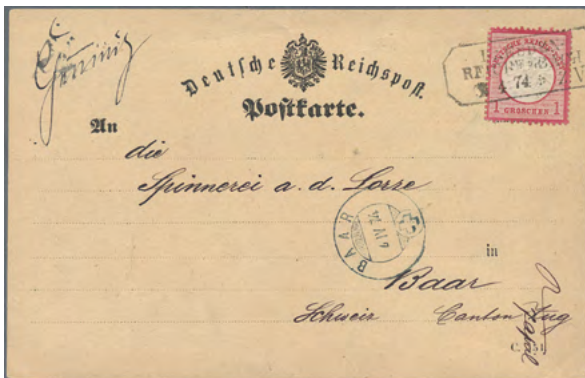 Deutsche Reichspost.
Postkarte.
74
1 GROSCHEN 1
An
die
Spinnerei a. d. Lorze
BAAR
in
Baar
Schweiz Canton Zug